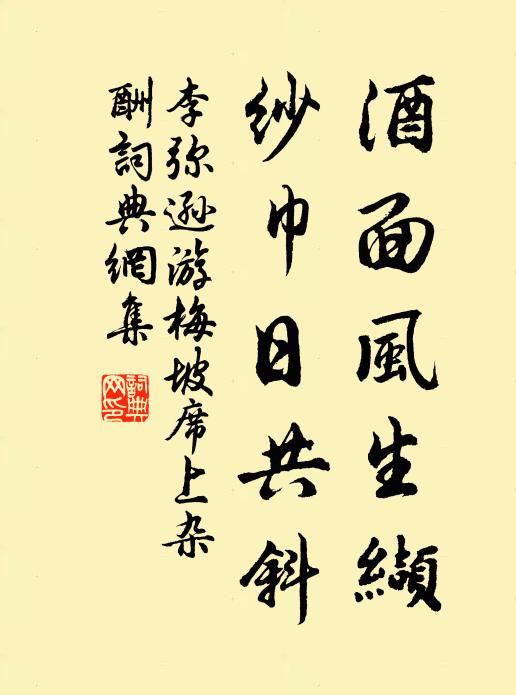 酒面風生纈
紗巾日共斜
李弥遜游梅坡席上杂
酬詞典網集
詞典
网印